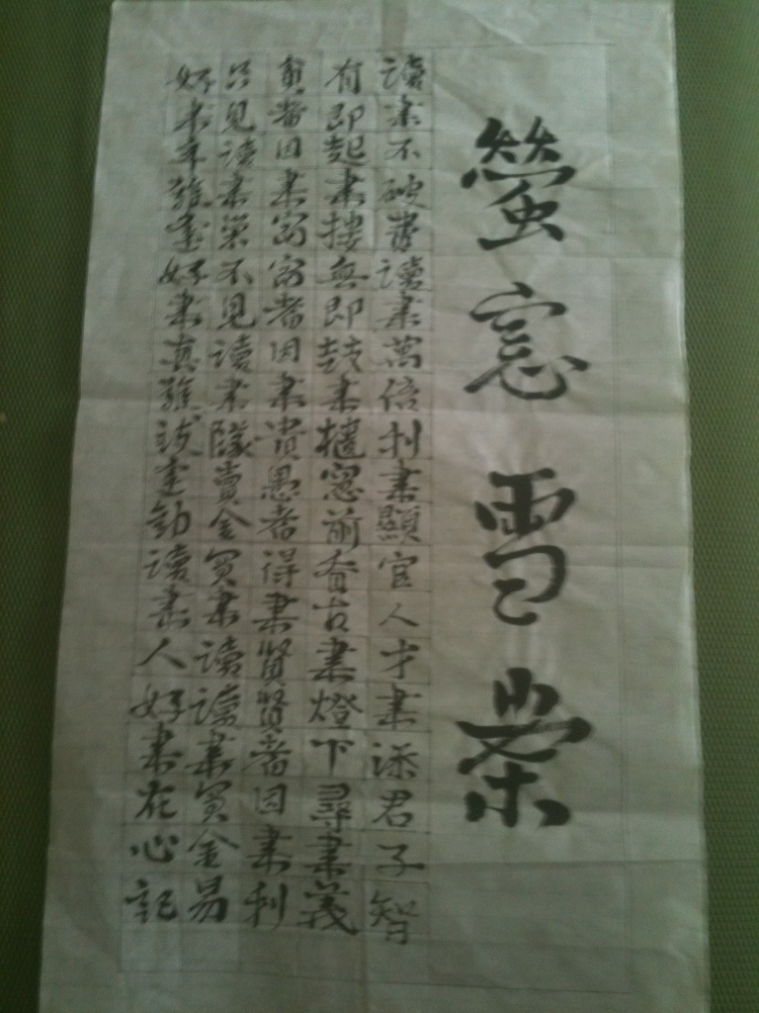 螢窓雪案
讀書不破費讀書萬倍利書顯官人才書添君子智
有即起書樓無即致書櫃窓前看古書燈下尋書義
貧者因書富富者因書貴愚者得書賢賢者因書利
只見讀書榮不見讀書隊賣金買書讀讀書買金易
好書卒難逢好書真難致奉勸讀書人好書在心記